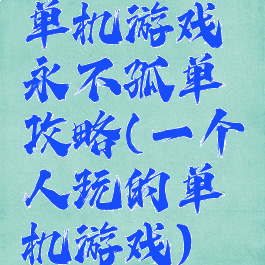 单机游戏
永不孤单
攻略(一个
人玩的单
机游戏)